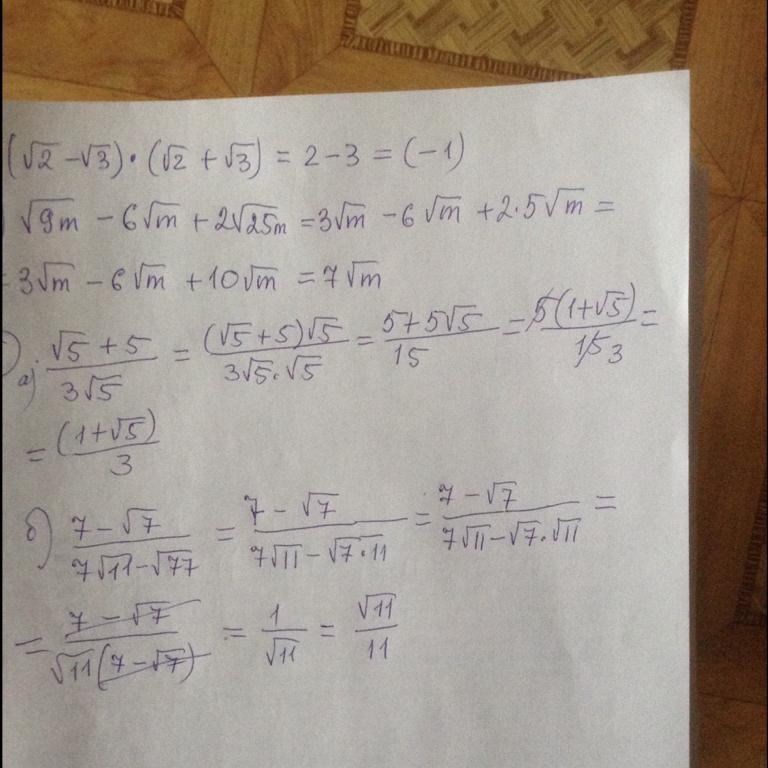 (√2 − √3) · (√2 + √3) = 2 − 3 = (−1)
) √9m − 6√m + 2√25m = 3√m − 6√m + 2·5√m =
= 3√m − 6√m + 10√m = 7√m
а) (√5 + 5)/(3√5) = ((√5 + 5)√5)/(3√5·√5) = (5 + 5√5)/15 = (5(1+√5))/(15 3) =
= (1+√5)/3
б) (7 − √7)/(7√11 − √77) = (7 − √7)/(7√11 − √7·11) = (7 − √7)/(7√11 − √7·√11) =
= (7 − √7)/(√11(7 − √7)) = 1/√11 = √11/11